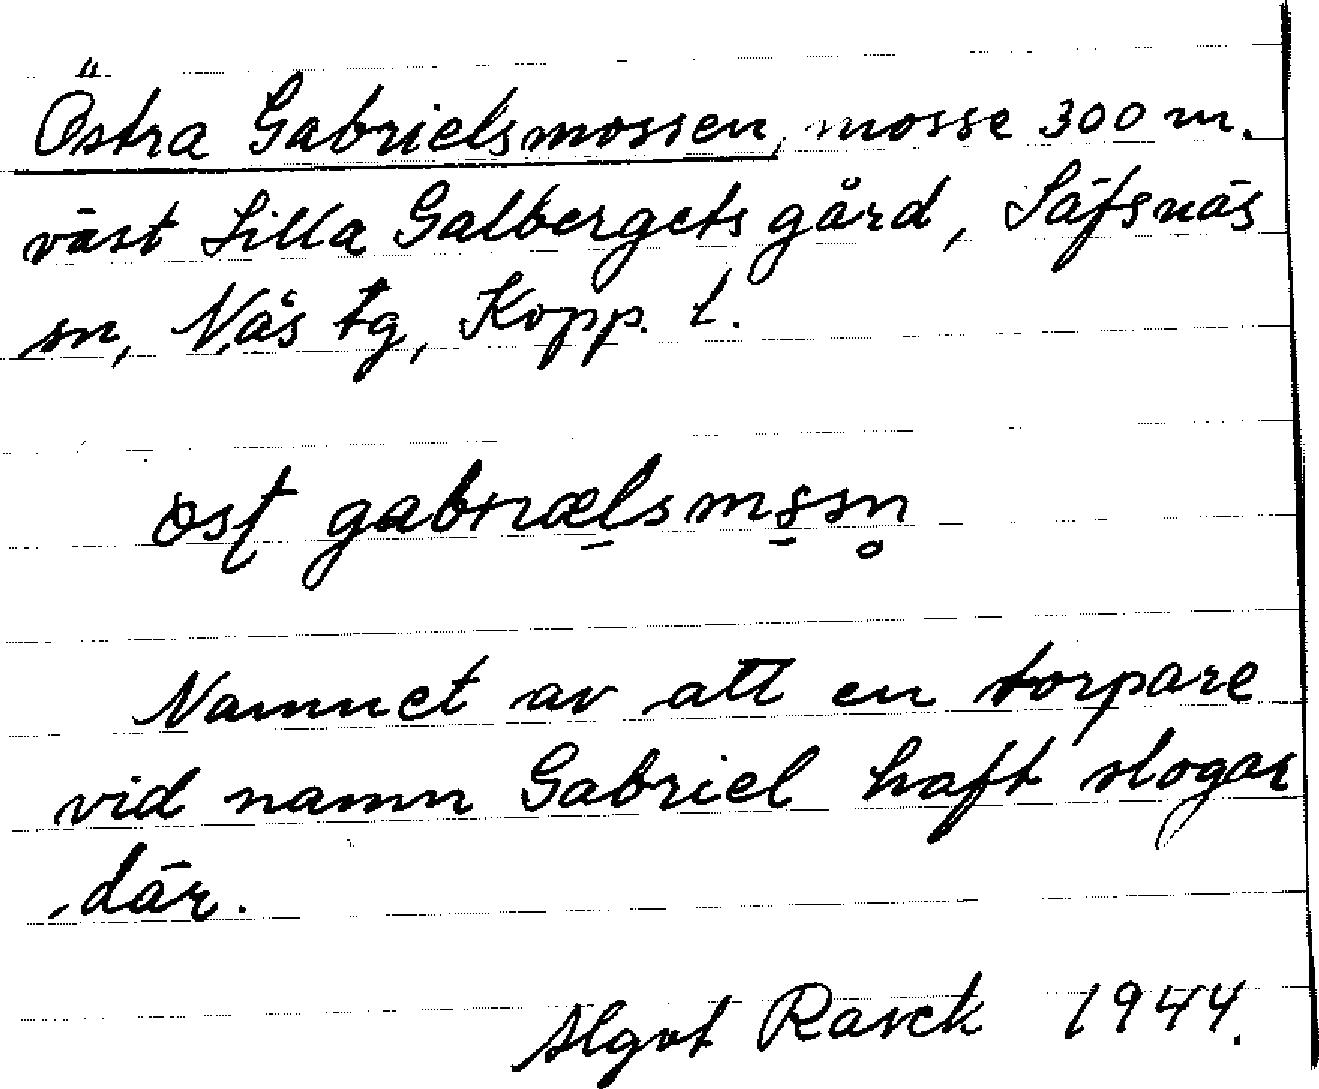 Östra Gabrielsmossen, mosse 300 m.
väst Lilla Galbergets gård, Säfsnäs
sn, Nås tg, Kopp. l.
gabrιæls
Namnet av att en torpare
vid namn Gabriel haft slogar
där.
Algot Rasck 1944.